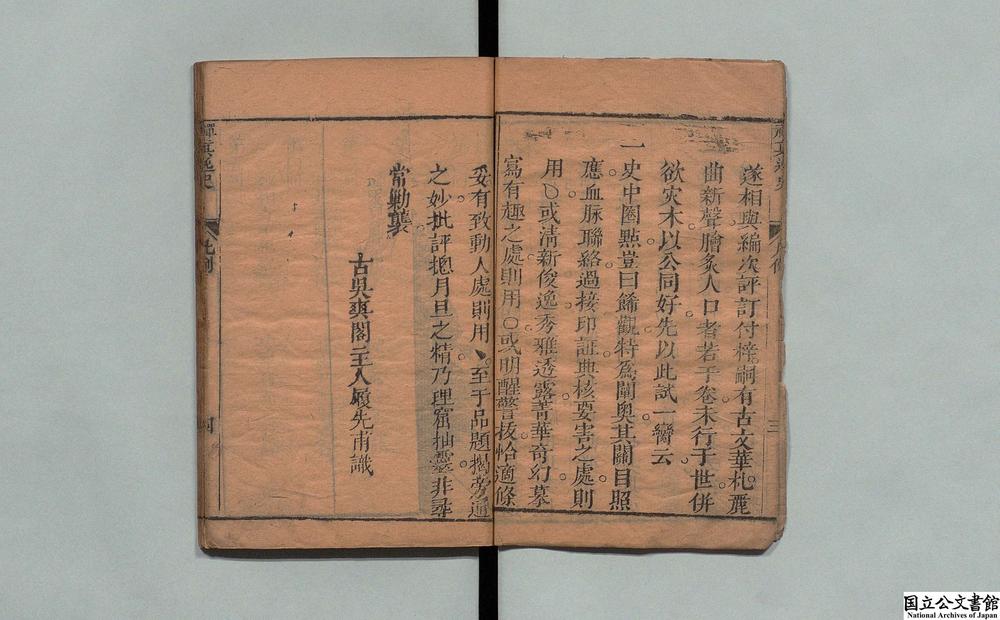 遂相與編次評訂付梓嗣有古文華札麗
曲新聲膾炙人口者若干卷未行于世併
欲灾木以公同好先以此試一臠云
一史中圈點豈曰飾觀特爲闡奥其關目照
應血脉聯絡過接印証典核要害之處則
用〇或清新俊逸秀雅透露菁華奇幻摹
寫有趣之處則用〇或明醒警拔恰適條
妥有致動人處則用﹅至于品題揭旁通
之妙批評總月旦之精乃理窟抽靈非尋
常勦襲
古吳爽閣主人履先甫識
禪真逸史
凡例
三
四
国立公文書館
National Archives of Japan